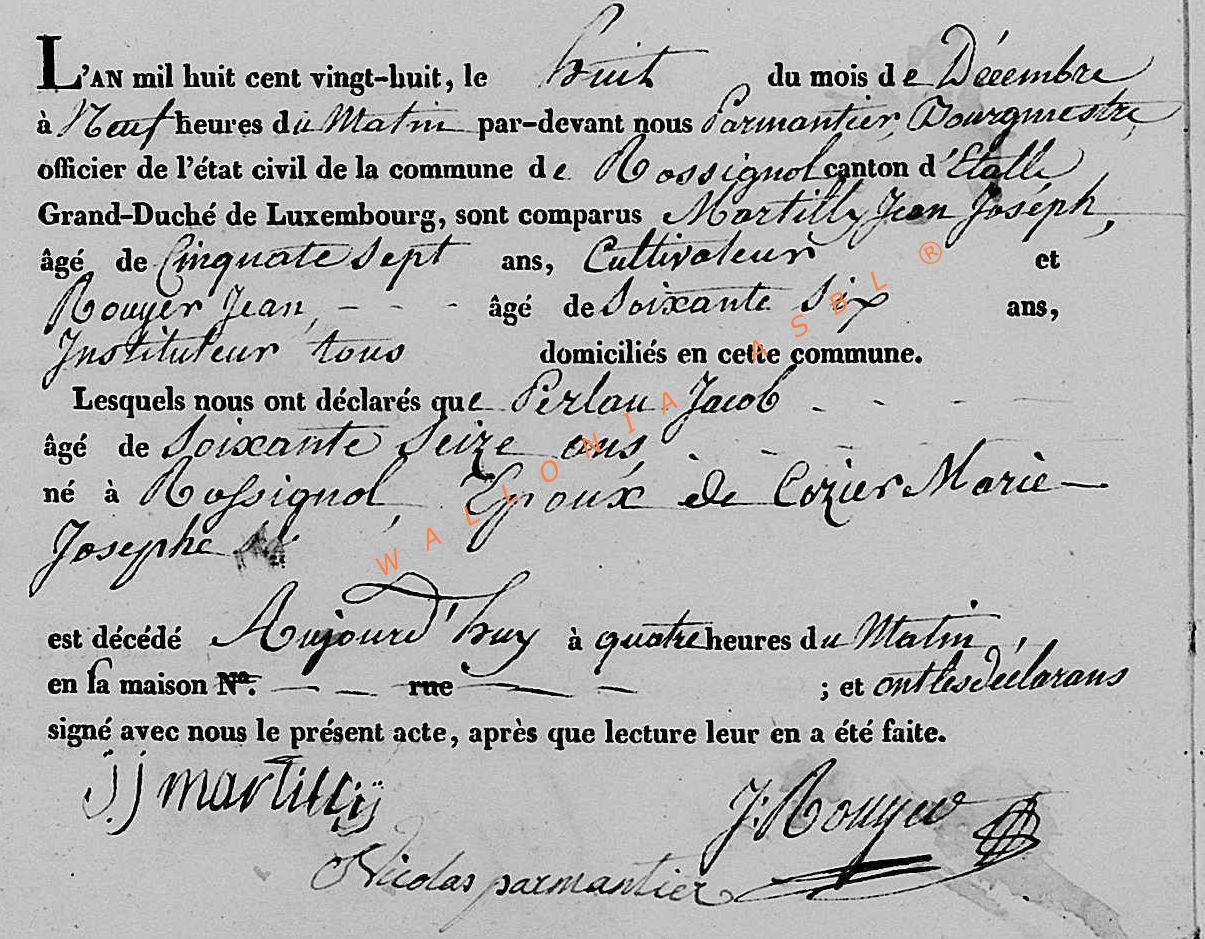 L'AN mil huit cent vingt-huit, le huit du mois de Décembre
à Neuf heures du Matin par-devant nous Parmantier, Bourgmestre,
officier de l'état civil de la commune de Rossignol canton d'Etalle
Grand-Duché de Luxembourg, sont comparus Martilly Jean Joséph,
âgé de Cinquate Sept ans, Cultivateur et
Rouyer Jean, - - - âgé de Soixante Six ans,
Instituteur tous domiciliés en cette commune.
Lesquels nous ont déclarés que Perlau Jacob - - - -
âgé de Soixante Seize ans - - -
né à Rossignol, Epoux de Cozier Marie
Josephe
est décédé Aujourd'huy à quatre heures du Matin,
en sa maison Nº. - - rue - - ; et ont les déclarans
signé avec nous le présent acte, après que lecture leur en a été faite.
j j martillÿ
J: Rouyer
Nicolas parmantier
WALLONIA ASBL ®